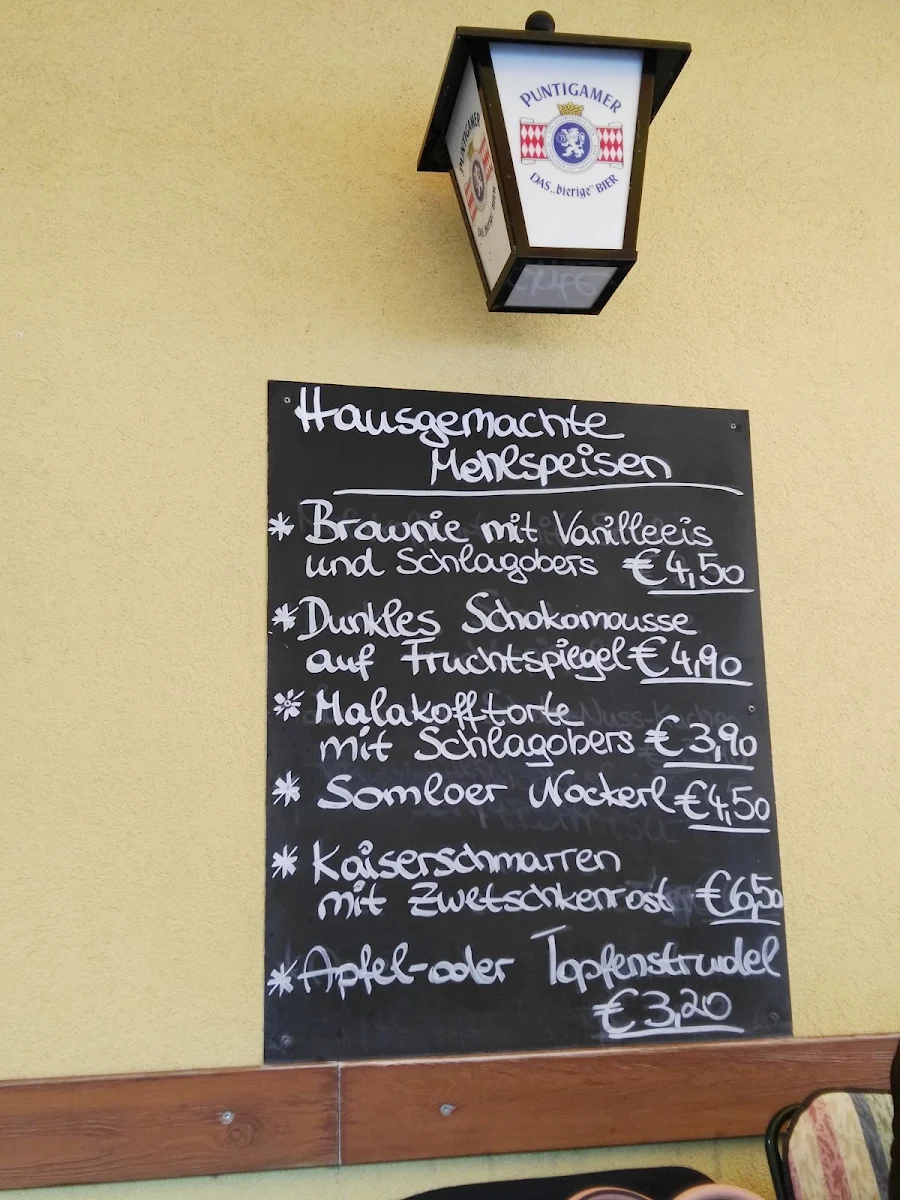 PUNTIGAMER
DAS „bierige" BIER
PUNTIGAMER
Hausgemachte
Mehlspeisen
* Brownie mit Vanilleeis
und Schlagobers € 4,50
* Dunkles Schokomousse
auf Fruchtspiegel € 4,90
* Malakofftorte
mit Schlagobers € 3,90
* Somloer Nockerl € 4,50
* Kaiserschmarren
mit Zwetschkenrost € 6,50
* Apfel- oder Topfenstrudel
€ 3,20